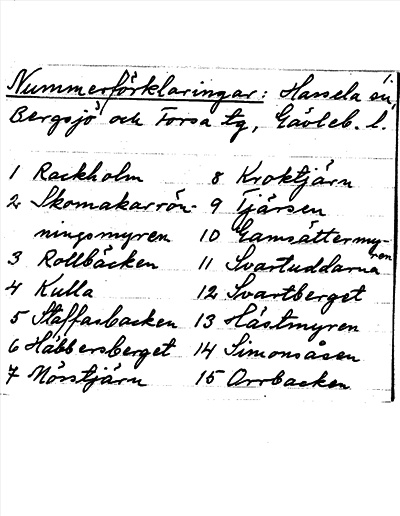 Nummerförklaringar: Hassela sn,
Bergsjö och Forsa tg, Gävleb. l.
1 Rackholm
2 Skomakarrön-
ningsmyren
3 Rollbäcken
4 Kulla
5 Staffasbacken
6 Häbbersberget
7 Mörstjärn
8 Kroktjärn
9 Tjärsen
10 Gamsättermy-
ren
11 Svartuddarna
12 Svartberget
13 Hästmyren
14 Simonsåsen
15 Orrbacken